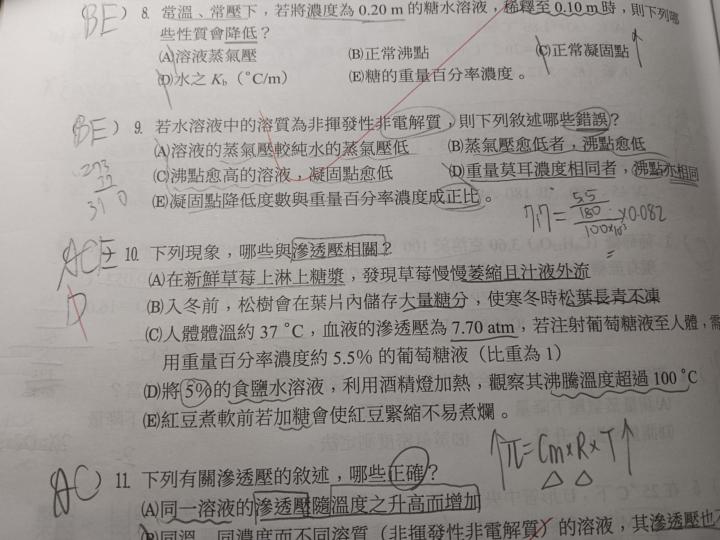 BE ) 8. 常溫、常壓下，若將濃度為 0.20 m 的糖水溶液，稀釋至 0.10 m 時，則下列哪
些性質會降低？
(A)溶液蒸氣壓 (B)正常沸點 (C)正常凝固點
(D)水之 Kb（°C/m） (E)糖的重量百分率濃度。
BE ) 9. 若水溶液中的溶質為非揮發性非電解質，則下列敘述哪些錯誤？
(A)溶液的蒸氣壓較純水的蒸氣壓低 (B)蒸氣壓愈低者，沸點愈低
(C)沸點愈高的溶液，凝固點愈低 (D)重量莫耳濃度相同者，沸點亦相同
(E)凝固點降低度數與重量百分率濃度成正比。
273
37
310
7.7 = 5.5/180 / 100×10³ × 0.082
ACE
D
10. 下列現象，哪些與滲透壓相關？
(A)在新鮮草莓上淋上糖漿，發現草莓慢慢萎縮且汁液外流
(B)入冬前，松樹會在葉片內儲存大量糖分，使寒冬時松葉長青不凍
(C)人體體溫約 37 °C，血液的滲透壓為 7.70 atm，若注射葡萄糖液至人體，需
用重量百分率濃度約 5.5% 的葡萄糖液（比重為 1）
(D)將 5% 的食鹽水溶液，利用酒精燈加熱，觀察其沸騰溫度超過 100 °C
(E)紅豆煮軟前若加糖會使紅豆緊縮不易煮爛。
↑π = Cm×R×T↑
AC ) 11. 下列有關滲透壓的敘述，哪些正確？
(A)同一溶液的滲透壓隨溫度之升高而增加
(B)同溫、同濃度而不同溶質（非揮發性非電解質）的溶液，其滲透壓也